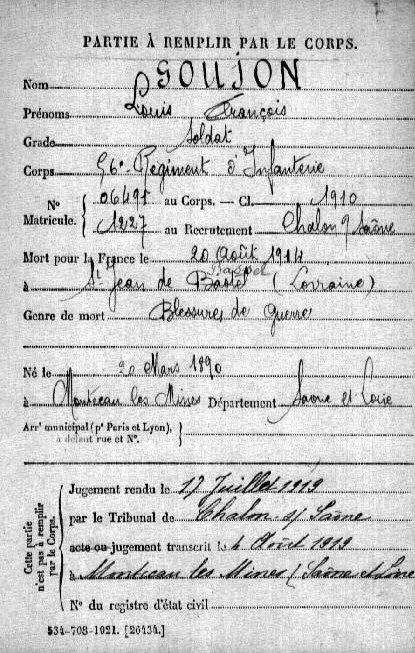 PARTIE À REMPLIR PAR LE CORPS.
Nom GOUJON
Prénoms Louis François
Grade Soldat
Corps 56e Régiment d'Infanterie
N° Matricule. { 06491 au Corps. — Cl. 1910
1227 au Recrutement Chalon s/ Saône
Mort pour la France le 20 Août 1914
Bassel
à St Jean de Bastel (Lorraine)
Genre de mort Blessures de Guerre
Né le 20 Mars 1890
à Montceau les Mines Département Saone et Loire
Arrt municipal (pr Paris et Lyon), à défaut rue et N°. }
Cette partie n'est pas à remplir par le Corps.
Jugement rendu le 17 Juillet 1919
par le Tribunal de Chalon s/ Saône
acte ou jugement transcrit le 4 Août 1919
à Montceau les Mines (Saône et Loire
N° du registre d'état civil
534-708-1921. [26434.]